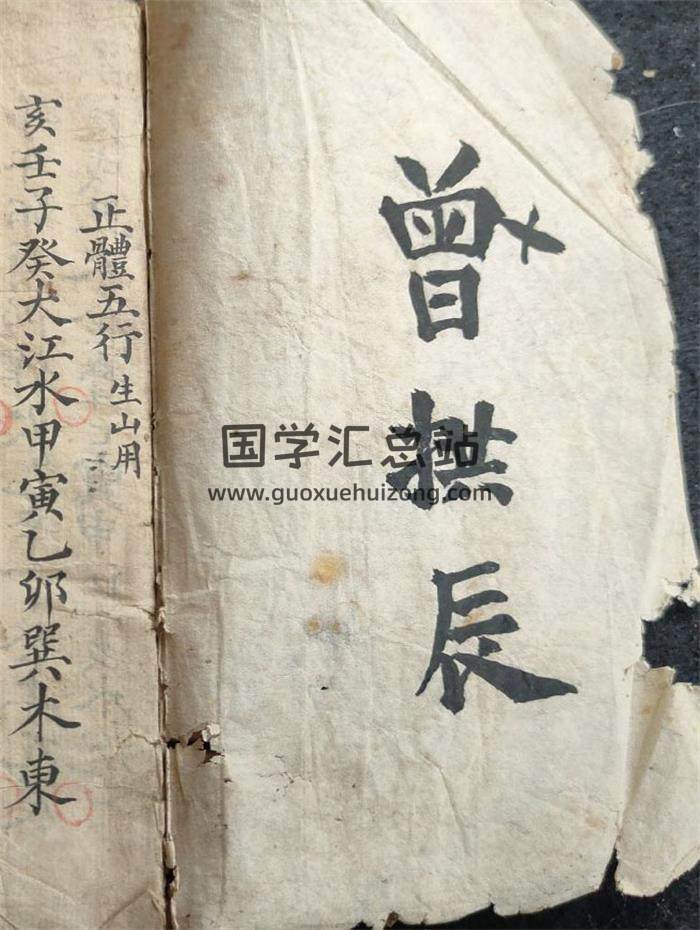 曾拱辰
正體五行生山用
亥壬子癸大江水甲寅乙卯巽木東
国学汇总站
www.guoxuehuizong.com